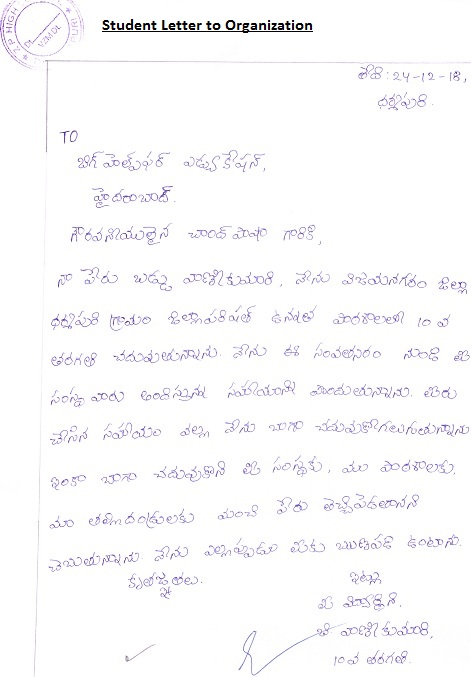 Student Letter to Organization
Z P HIGH
VZM Dt.
తేది : 24-12-18,
ధర్మపురి.
TO
బిగ్ హెల్ప్ ఫర్ ఎడ్యుకేషన్,
హైదరాబాద్.
గౌరవనీయులైన చాంద్ పాషా గారికి,
నా పేరు బడ్డు వాణీకుమారి, నేను విజయనగరం జిల్లా
ధర్మపురి గ్రామం జిల్లాపరిషత్ ఉన్నత పాఠశాలలో 10 వ
తరగతి చదువుతున్నాను. నేను ఈ సంవత్సరం నుండి మీ
సంస్థ వారు అందిస్తున్న సహాయాన్ని పొందుతున్నాను. మీరు
చేసిన సహాయం వల్ల నేను బాగా చదువుకోగలుగుతున్నాను
ఇంకా బాగా చదువుకొని మీ సంస్థకు, మా పాఠశాలకు,
మా తల్లిదండ్రులకు మంచి పేరు తెచ్చిపెడతానని
చెబుతున్నాను నేను ఎల్లప్పుడూ మీకు ఋణపడి ఉంటాను.
కృతజ్ఞతలు.
ఇట్లు
మీ విద్యార్థిని.
బి వాణీకుమారి,
10 వ తరగతి.